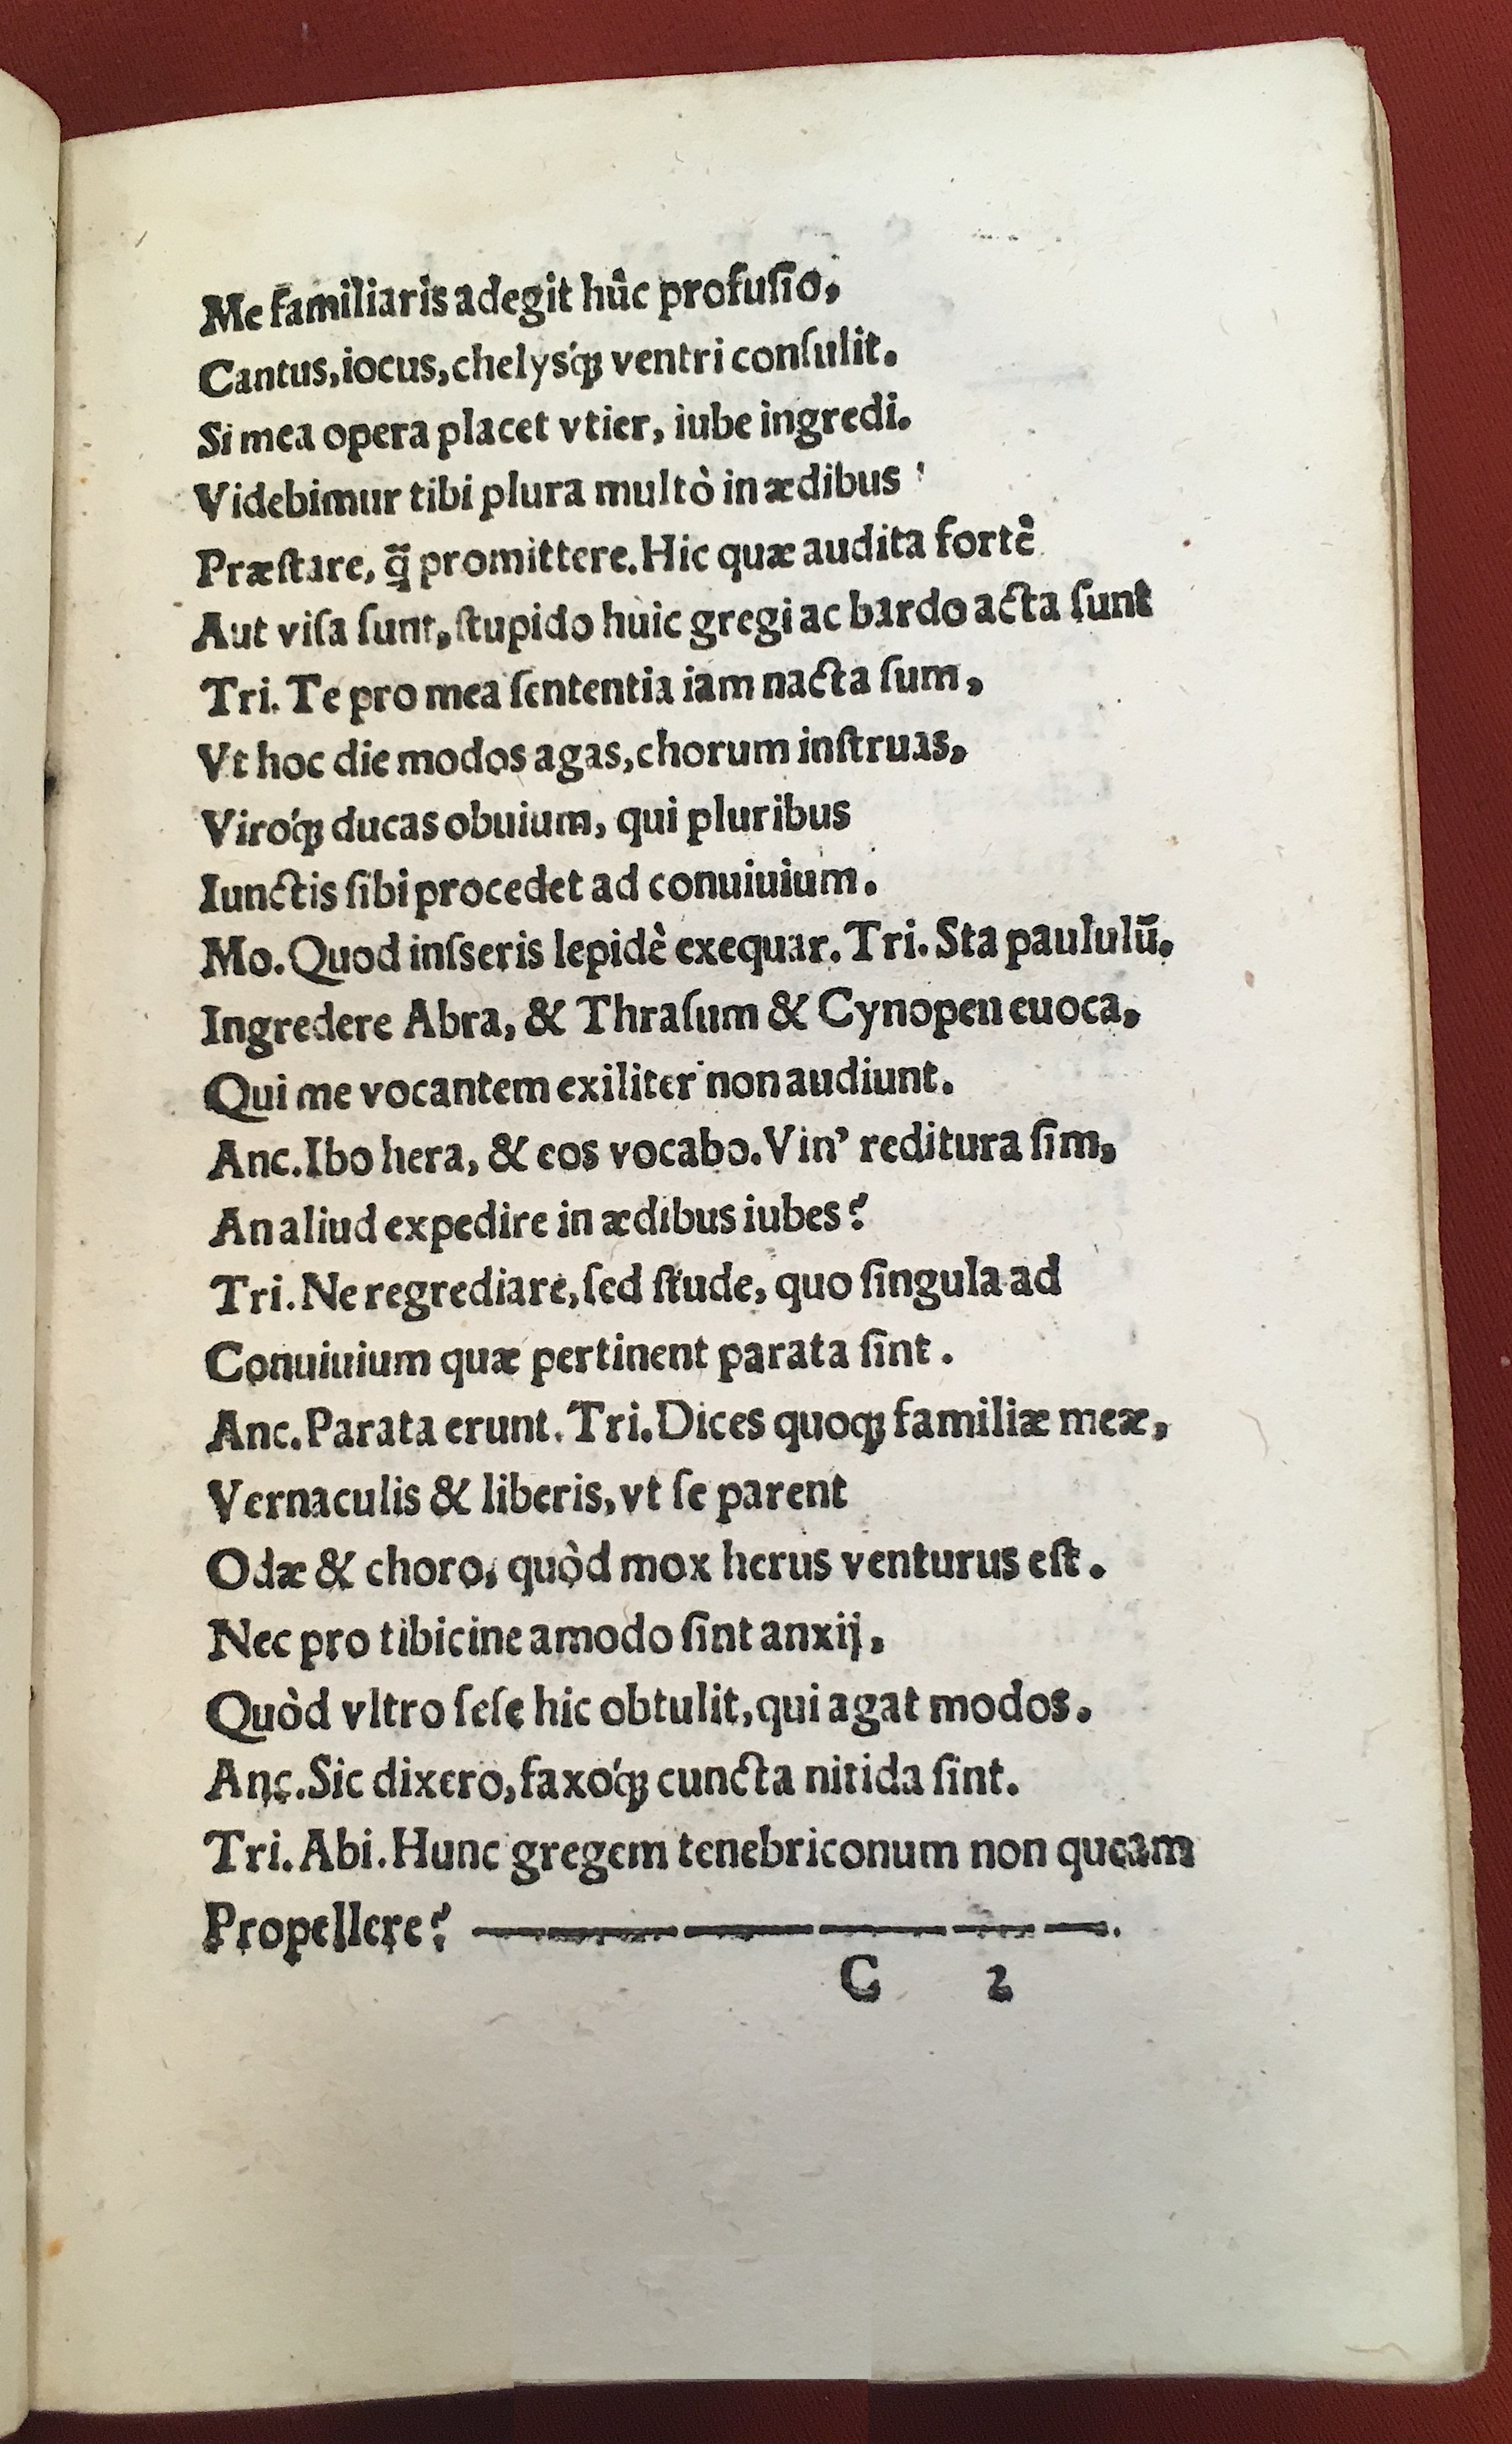 Me familiaris adegit hûc profuſio,
Cantus, iocus, chelysq́ꝫ ventri conſulit.
Si mea opera placet vtier, iube ingredi.
Videbimur tibi plura multò in ædibus
Præſtare, q̈ꝫ promittere. Hic quæ audita fortè
Aut viſa ſunt, ſtupido huic gregi ac bardo acta ſunt
Tri. Te pro mea ſententia iam nacta ſum,
Vt hoc die modos agas, chorum inſtruas,
Viroq́ꝫ ducas obuium, qui pluribus
Iunctis ſibi procedet ad conuiuium.
Mo. Quod inſseris lepidè exequar. Tri. Sta paululū.
Ingredere Abra, & Thraſum & Cynopen euoca,
Qui me vocantem exiliter non audiunt.
Anc. Ibo hera, & eos vocabo. Vin’ reditura ſim,
An aliud expedire in ædibus iubes?
Tri. Ne regrediare, ſed ſtude, quo ſingula ad
Conuiuium quæ pertinent parata ſint.
Anc. Parata erunt. Tri. Dices quoqꝫ familiæ meæ,
Vernaculis & liberis, vt ſe parent
Odæ & choro, quòd mox herus venturus eſt.
Nec pro tibicine amodo ſint anxij,
Quòd vltro ſeſe hic obtulit, qui agat modos.
Anc. Sic dixero, faxoq́ꝫ cuncta nitida ſint.
Tri. Abi. Hunc gregem tenebriconum non queam
Propellere?
C 2